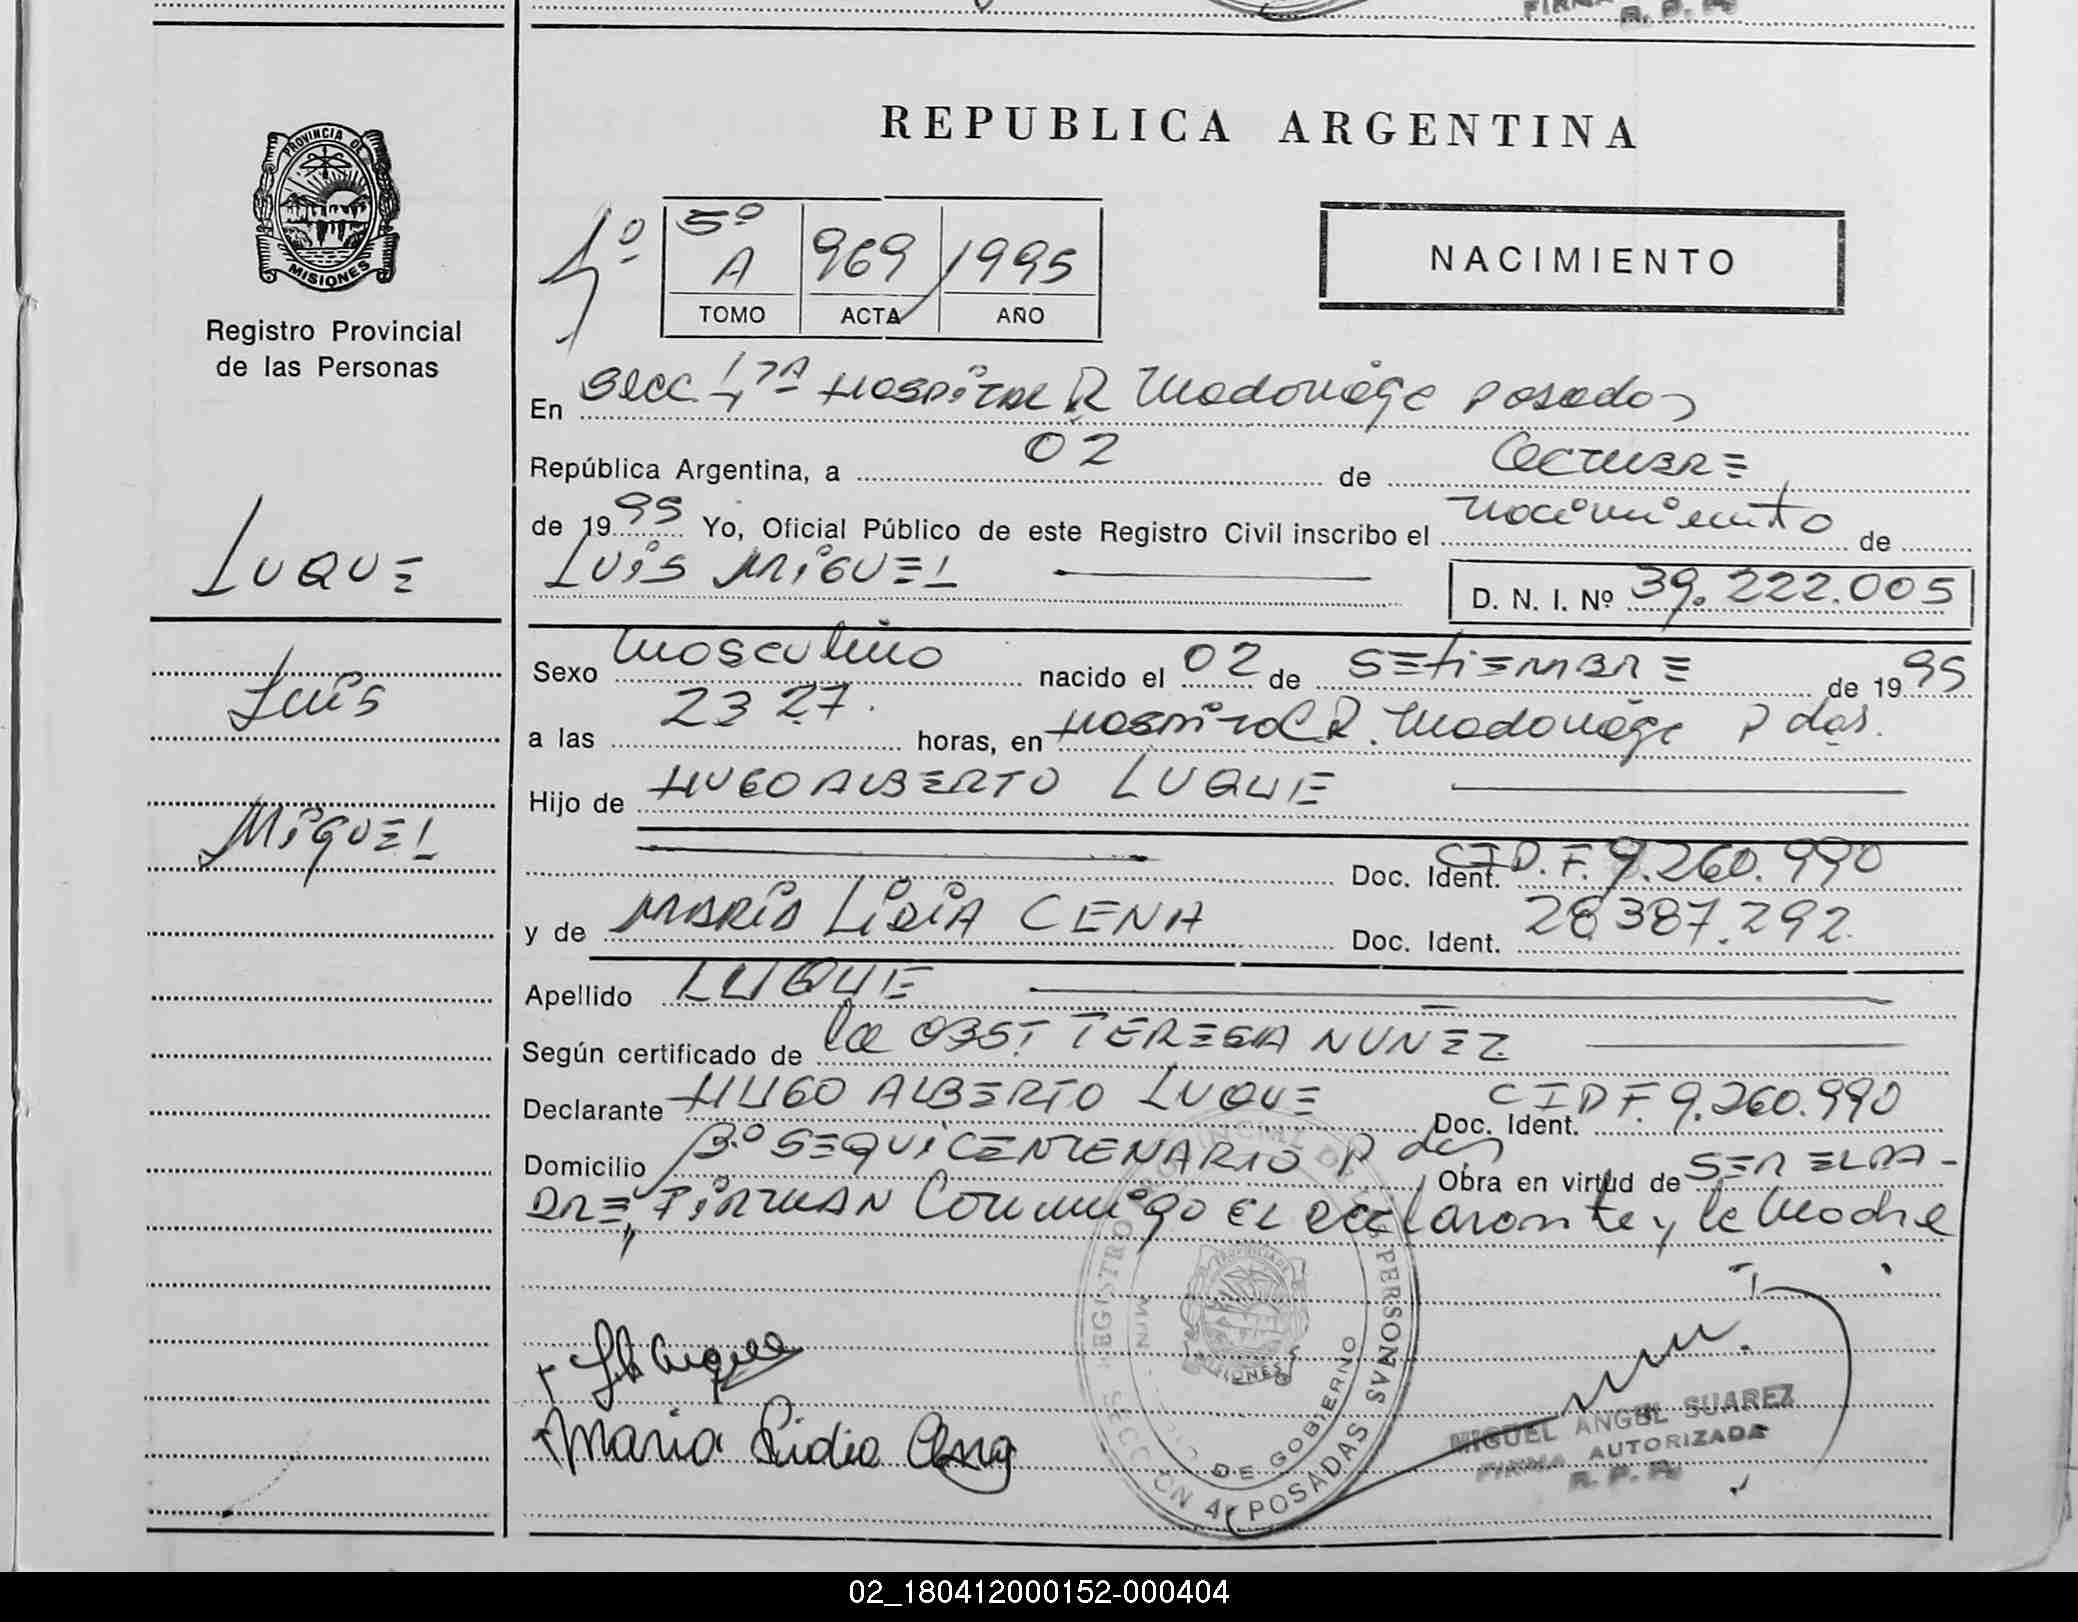 FIRMA
R. P. P.
REPUBLICA ARGENTINA
PROVINCIA DE
MISIONES
Registro Provincial
de las Personas
4º
5º
A 969 1995
TOMO ACTA AÑO
NACIMIENTO
En Secc. 4ta Hospital R Madariaga Posadas
República Argentina, a 02 de Octubre
de 1995 Yo, Oficial Público de este Registro Civil inscribo el nacimiento de
LUQUE
LUIS MIGUEL
D. N. I. Nº 39.222.005
Luis
Miguel
Sexo masculino nacido el 02 de SETIEMBRE de 1995
a las 23 27. horas, en Hospital R. Madariaga Pdas.
Hijo de HUGO ALBERTO LUQUE
Doc. Ident. CIP.F. 9.260.990
y de MARIA LIDIA CENA Doc. Ident. 28387.292
Apellido LUQUE
Según certificado de la OBST TERESA NUNEZ
Declarante HUGO ALBERTO LUQUE Doc. Ident. CIPF. 9.260.990
Domicilio Bº SEQUICENTENARIO Pdas Obra en virtud de SER EL PA-
DRE, FIRMAN Conmigo EL declarante y la Madre
REGISTRO PROVINCIAL DE LAS PERSONAS
MIN DE GOBIERNO
SECCION 4 POSADAS
MISIONES
Maria Lidia Cena
MIGUEL ANGEL SUAREZ
FIRMA AUTORIZADA
R. P. P.
02_180412000152-000404